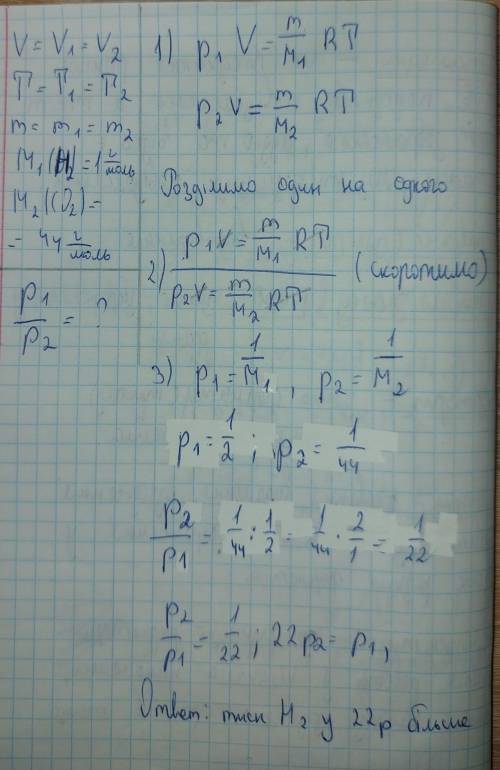 V = V₁ = V₂
T = T₁ = T₂
m = m₁ = m₂
M₁(H₂) = 1 г/моль
M₂(CO₂) =
= 44 г/моль
p₁/p₂ = ?
1) p₁ V = m/M₁ RT
p₂ V = m/M₂ RT
Розділимо один на одного
2) p₁ V = m/M₁ RT / p₂ V = m/M₂ RT (скоротимо)
3) p₁ = 1/M₁ , p₂ = 1/M₂
p₁ = 1/2 ; p₂ = 1/44
p₂/p₁ = 1/44 : 1/2 = 1/44 · 2/1 = 1/22
p₂/p₁ = 1/22 ; 22p₂ = p₁,
Ответ: тиск H₂ у 22р більше